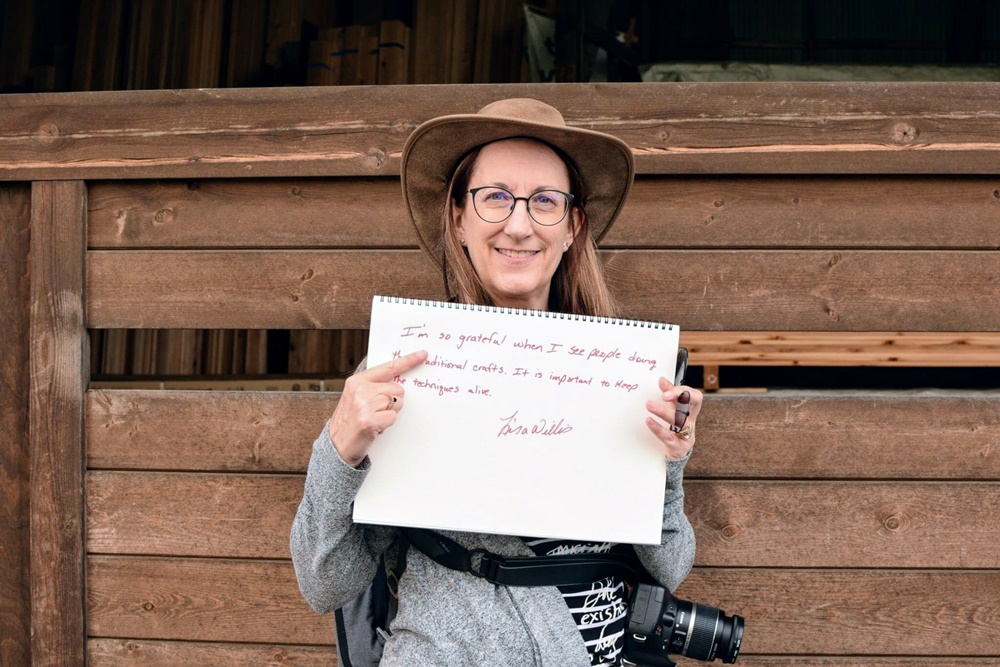 I'm so grateful when I see people doing
traditional crafts. It is important to keep
the techniques alive.
Lisa Willis
exist